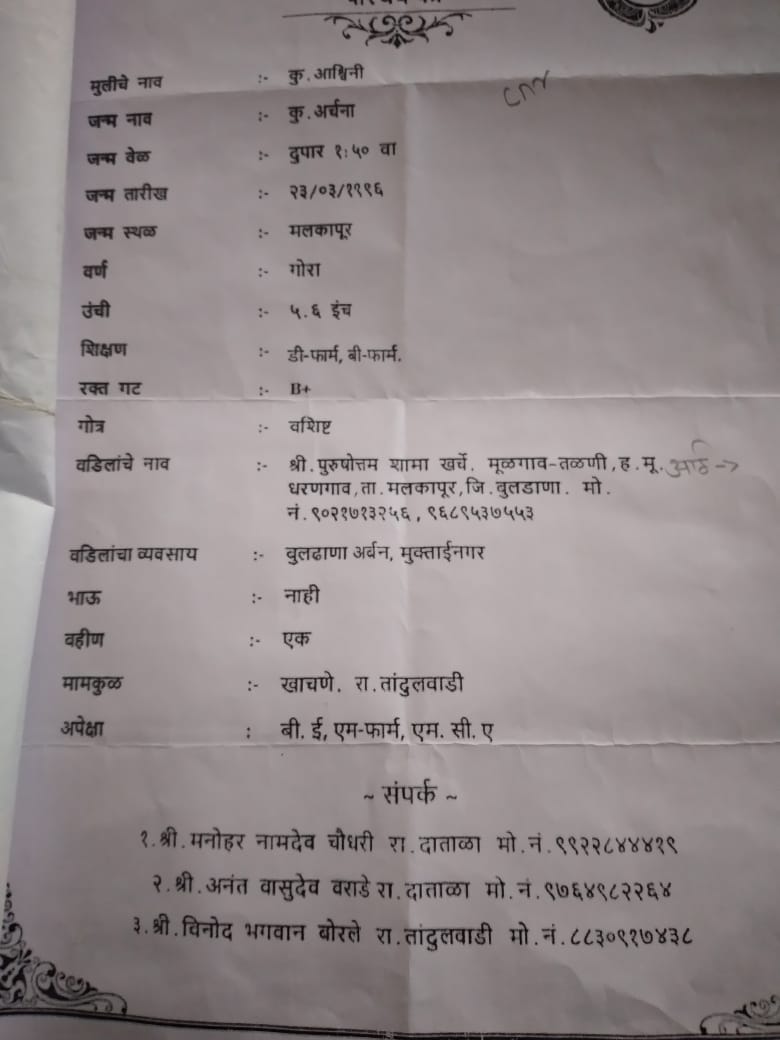 मुलीचे नाव :- कु.आश्विनी
जन्म नाव :- कु.अर्चना
जन्म वेळ :- दुपार १:५० वा
जन्म तारीख :- २३/०३/१९९६
जन्म स्थळ :- मलकापूर
वर्ण :- गोरा
उंची :- ५.६ इंच
शिक्षण :- डी-फार्म, बी-फार्म.
रक्त गट :- B+
गोत्र :- वशिष्ट
वडिलांचे नाव :- श्री.पुरुषोत्तम शामा खर्चे. मूळगाव-तळणी,ह.मू.
धरणगाव,ता.मलकापूर,जि.बुलडाणा. मो.
नं.९०२१७१३२५६, ९६८९५३७५५३
वडिलांचा व्यवसाय :- बुलढाणा अर्बन, मुक्ताईनगर
भाऊ :- नाही
वहीण :- एक
मामकुळ :- खाचणे. रा.तांदुलवाडी
अपेक्षा : बी. ई, एम-फार्म, एम. सी. ए
~ संपर्क ~
१.श्री.मनोहर नामदेव चौधरी रा.दाताळा मो.नं.९९२२८४४४१९
२.श्री.अनंत वासुदेव वराडे रा.दाताळा मो.नं.९७६४९८२२६४
३.श्री.विनोद भगवान बोरले रा.तांदुलवाडी मो.नं.८८३०९१७४३८